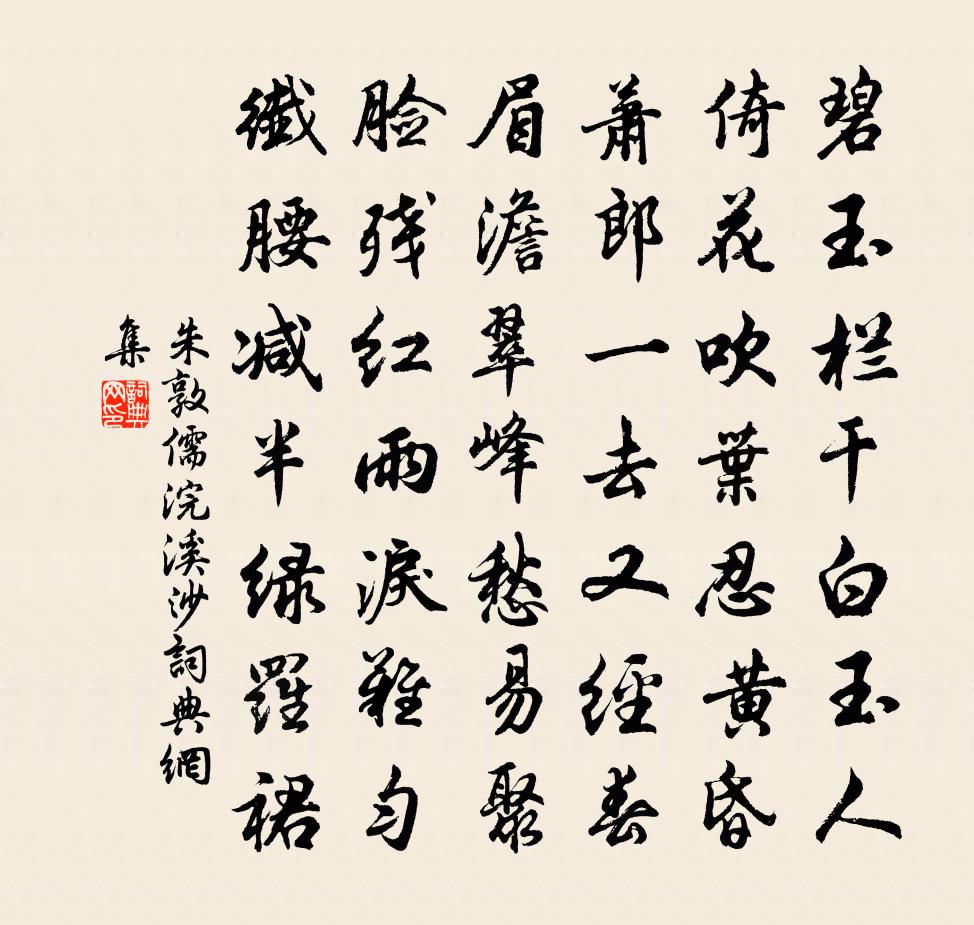 碧玉栏干白玉人
倚花吹葉忍黄昏
蕭郎一去又經春
眉澹翠峰愁易聚
脸残红雨淚難匀
纖腰减半绿羅裙
朱敦儒浣溪沙詞典網
集
詞典网印